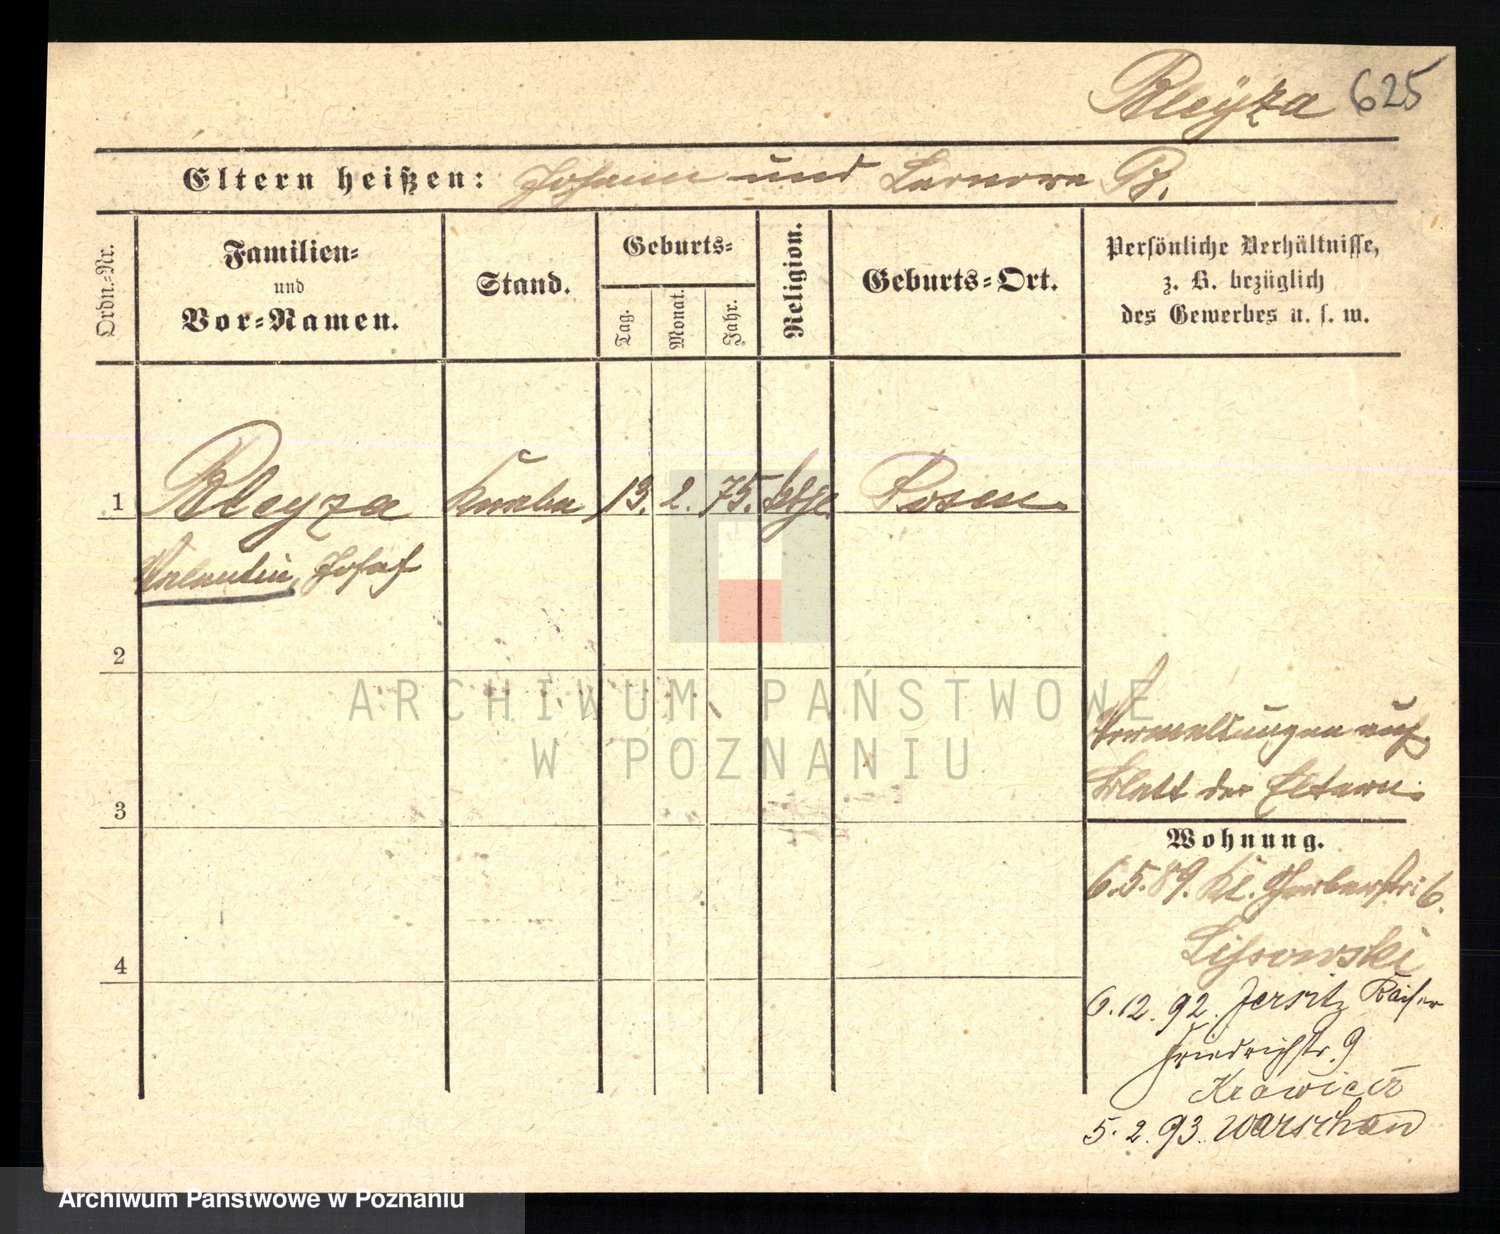 Bleyza 625
Eltern heißen: Johann und Lenorea B.
Ordn.-Nr.
Familien-
und
Vor-Namen.
Stand.
Geburts-
Tag.
Monat.
Jahr.
Religion.
Geburts-Ort.
Persönliche Verhältnisse,
z. B. bezüglich
des Gewerbes u. s. w.
1 Bleyza Knabe 13. 2. 75. kthl. Posen
Valentin, Josef
2
3
4
Vermeldungen auf
Blatt der Eltern.
Wohnung.
6.5.89. Kl. Gerberstr. 6.
6.12.92. Jersitz Kaiser
Friedrichstr. 9
5.2.93. Warschau
ARCHIWUM PAŃSTWOWE
W POZNANIU
Archiwum Państwowe w Poznaniu